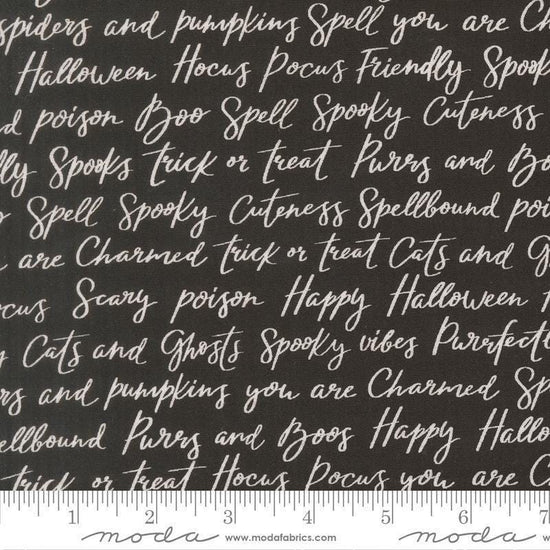 spiders and pumpkins Spell you are Ch
Halloween Hocus Pocus Friendly Spook
d poison Boo Spell Spooky Cuteness
lly Spooks trick or treat Purrs and Bo
o Spell Spooky Cuteness Spellbound poi
are Charmed trick or treat Cats and G
ocus Scary poison Happy Halloween
y Cats and Ghosts Spooky vibes Purrfectl
rs and pumpkins you are Charmed Sp
ellbound Purrs and Boos Happy Hallo
trick or treat Hocus Pocus you are C
1 2 3 4 5 6 7
moda www.modafabrics.com moda